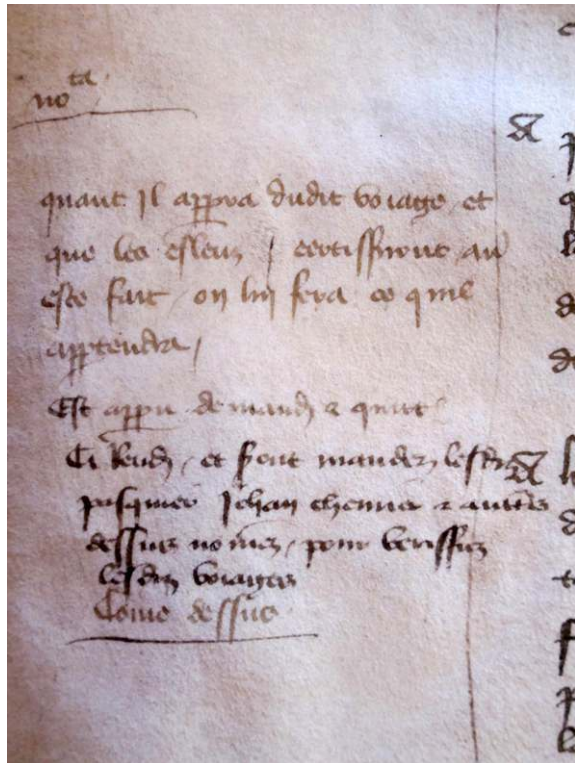 nota
quant Il appra dudit voiage et
que les esleuz certiffiront au
este fait on luy fera ce quil
apptendra
Est appu de mand & quict
Ci Rendz et sont mandez lesdiz
pasquier Jehan chemier & autres
dessus nomez pour veriffier
lesdiz voiages
Come dessus